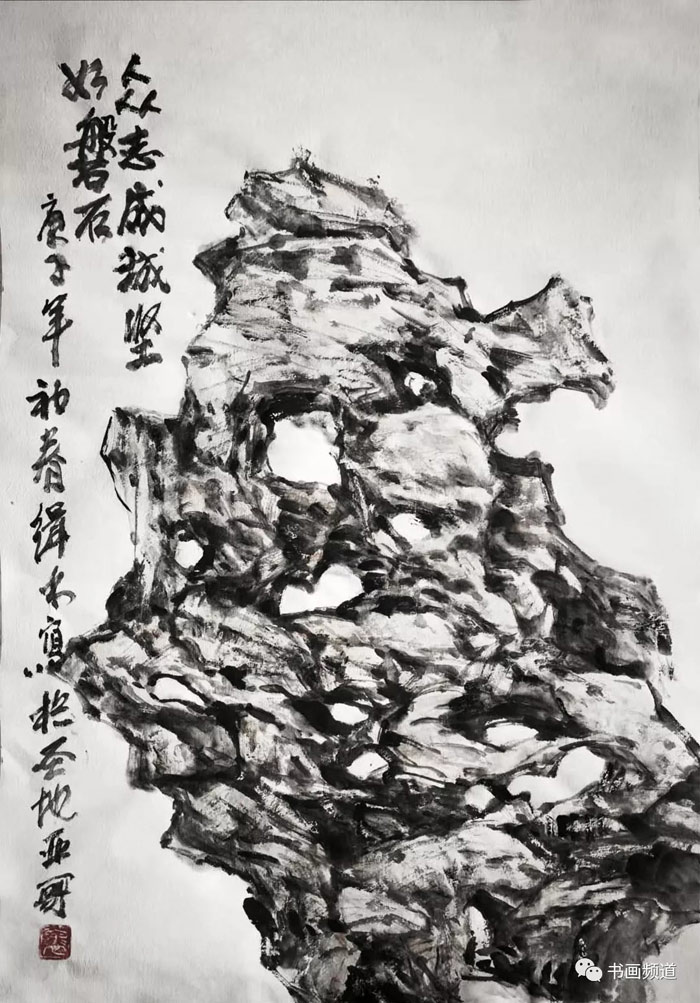 众志成城坚
如磐石
庚子年初春缉水写于圣地亚哥
书画频道